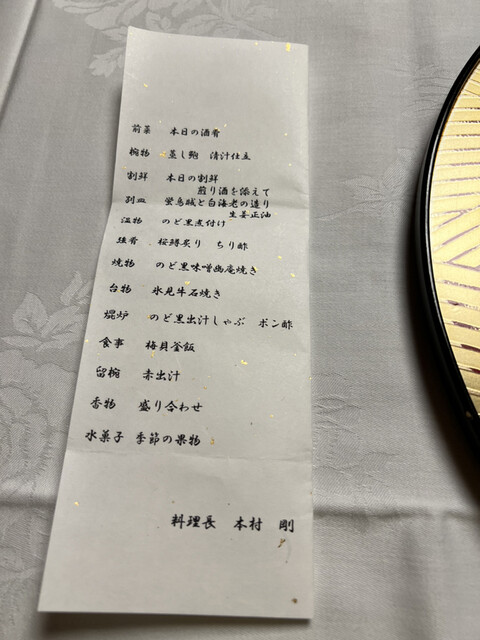 前菜 本日の酒肴
椀物 蒸し鮑 清汁仕立
割鮮 本日の割鮮
煎り酒を添えて
別皿 蛍烏賊と白海老の造り
生姜正油
温物 のど黒煮付け
強肴 桜鱒炙り ちり酢
焼物 のど黒味噌幽庵焼き
台物 氷見牛石焼き
焜炉 のど黒出汁しゃぶ ポン酢
食事 梅貝釜飯
留椀 赤出汁
香物 盛り合わせ
水菓子 季節の果物
料理長 本村 剛